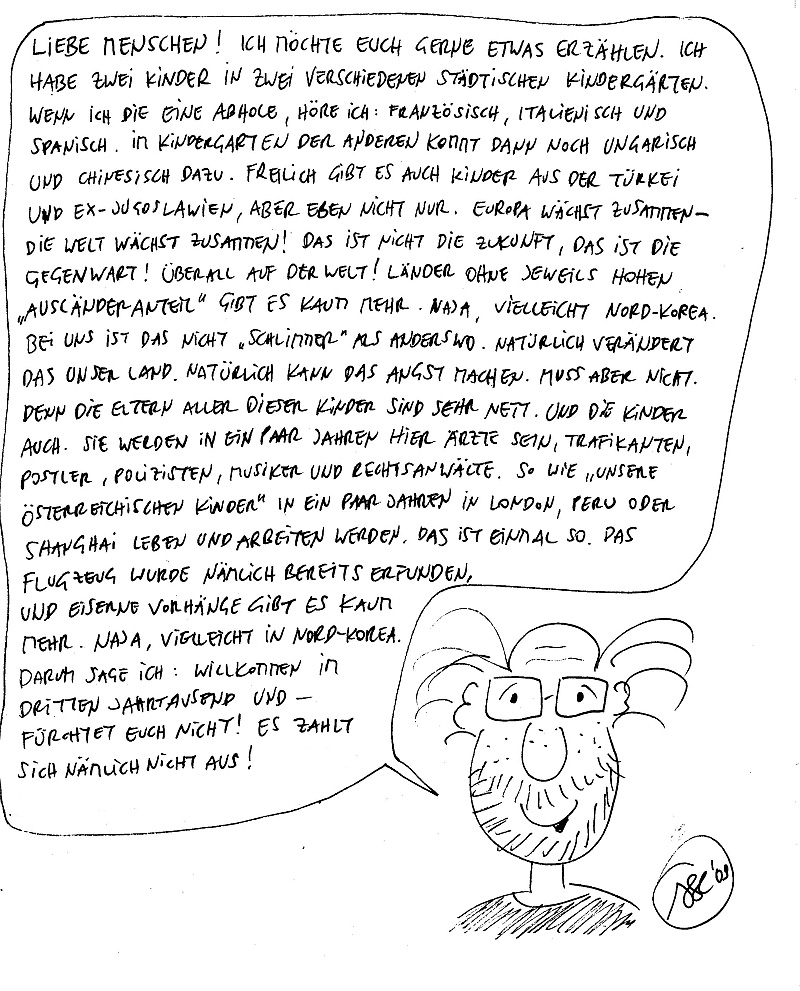 LIEBE MENSCHEN! ICH MÖCHTE EUCH GERNE ETWAS ERZÄHLEN. ICH
HABE ZWEI KINDER IN ZWEI VERSCHIEDENEN STÄDTISCHEN KINDERGÄRTEN.
WENN ICH DIE EINE ABHOLE, HÖRE ICH: FRANZÖSISCH, ITALIENISCH UND
SPANISCH. IM KINDERGARTEN DER ANDEREN KOMMT DANN NOCH UNGARISCH
UND CHINESISCH DAZU. FREILICH GIBT ES AUCH KINDER AUS DER TÜRKEI
UND EX-JUGOSLAWIEN, ABER EBEN NICHT NUR. EUROPA WÄCHST ZUSAMMEN-
DIE WELT WÄCHST ZUSAMMEN! DAS IST NICHT DIE ZUKUNFT, DAS IST DIE
GEGENWART! ÜBERALL AUF DER WELT! LÄNDER OHNE JEWEILS HOHEN
„AUSLÄNDERANTEIL" GIBT ES KAUM MEHR. NAJA, VIELLEICHT NORD-KOREA.
BEI UNS IST DAS NICHT „SCHLIMMER" ALS ANDERSWO. NATÜRLICH VERÄNDERT
DAS UNSER LAND. NATÜRLICH KANN DAS ANGST MACHEN. MUSS ABER NICHT.
DENN DIE ELTERN ALLER DIESER KINDER SIND SEHR NETT. UND DIE KINDER
AUCH. SIE WERDEN IN EIN PAAR JAHREN HIER ÄRZTE SEIN, TRAFIKANTEN,
POSTLER, POLIZISTEN, MUSIKER UND RECHTSANWÄLTE. SO WIE „UNSERE
ÖSTERREICHISCHEN KINDER" IN EIN PAAR JAHREN IN LONDON, PERU ODER
SHANGHAI LEBEN UND ARBEITEN WERDEN. DAS IST EINMAL SO. DAS
FLUGZEUG WURDE NÄMLICH BEREITS ERFUNDEN,
UND EISERNE VORHÄNGE GIBT ES KAUM
MEHR. NAJA, VIELLEICHT IN NORD-KOREA.
DARUM SAGE ICH: WILLKOMMEN IM
DRITTEN JAHRTAUSEND UND –
FÜRCHTET EUCH NICHT! ES ZAHLT
SICH NÄMLICH NICHT AUS!